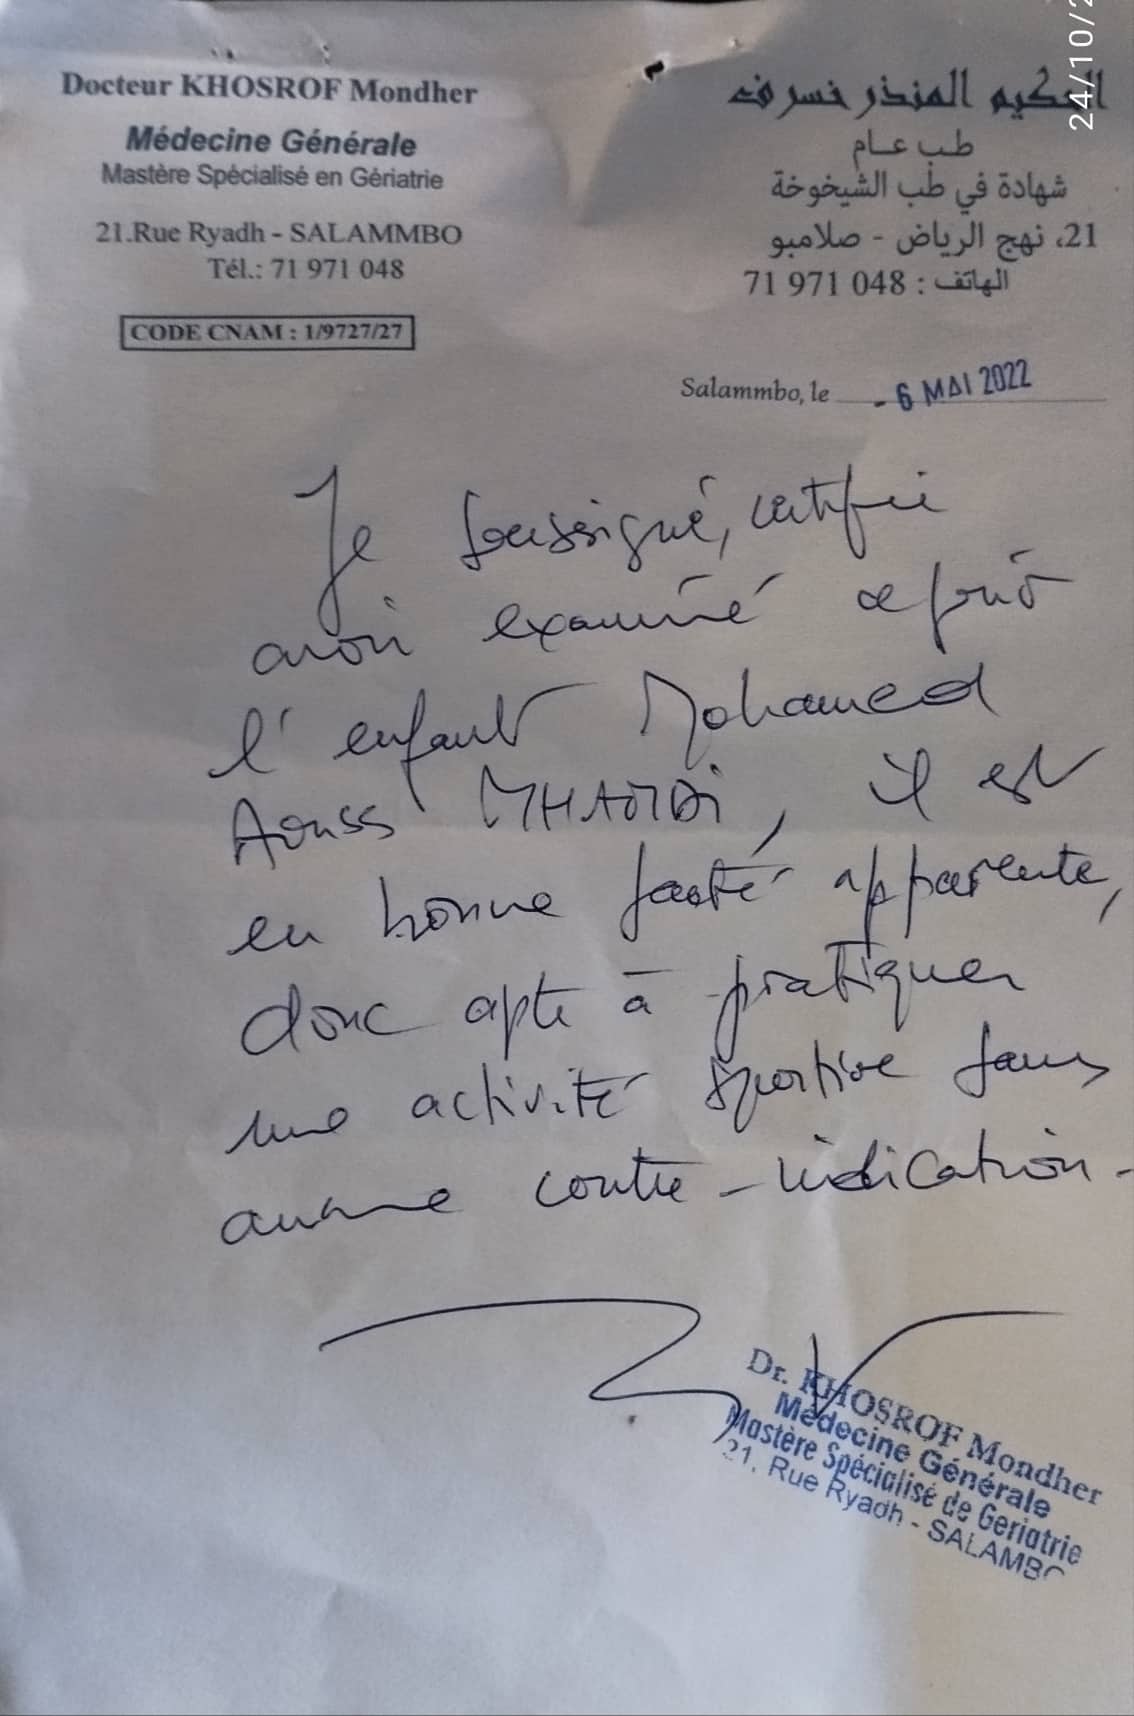 24/10/2
Docteur KHOSROF Mondher
Médecine Générale
Mastère Spécialisé en Gériatrie
21.Rue Ryadh - SALAMMBO
Tél.: 71 971 048
CODE CNAM : 1/9727/27
الحكيم المنذر خسرف
طب عام
شهادة في طب الشيخوخة
21، نهج الرياض - صلامبو
الهاتف : 048 971 71
Salammbo, le - 6 MAI 2022
Je soussigné, certifie
avoir examiné ce jour
l'enfant Mohamed
Aouss MHAMDi, il est
en bonne santé apparente,
donc apte à pratiquer
une activité sportive sans
aucune contre-indication -
Dr. KHOSROF Mondher
Médecine Générale
Mastère Spécialisé de Geriatrie
21, Rue Ryadh - SALAMBO